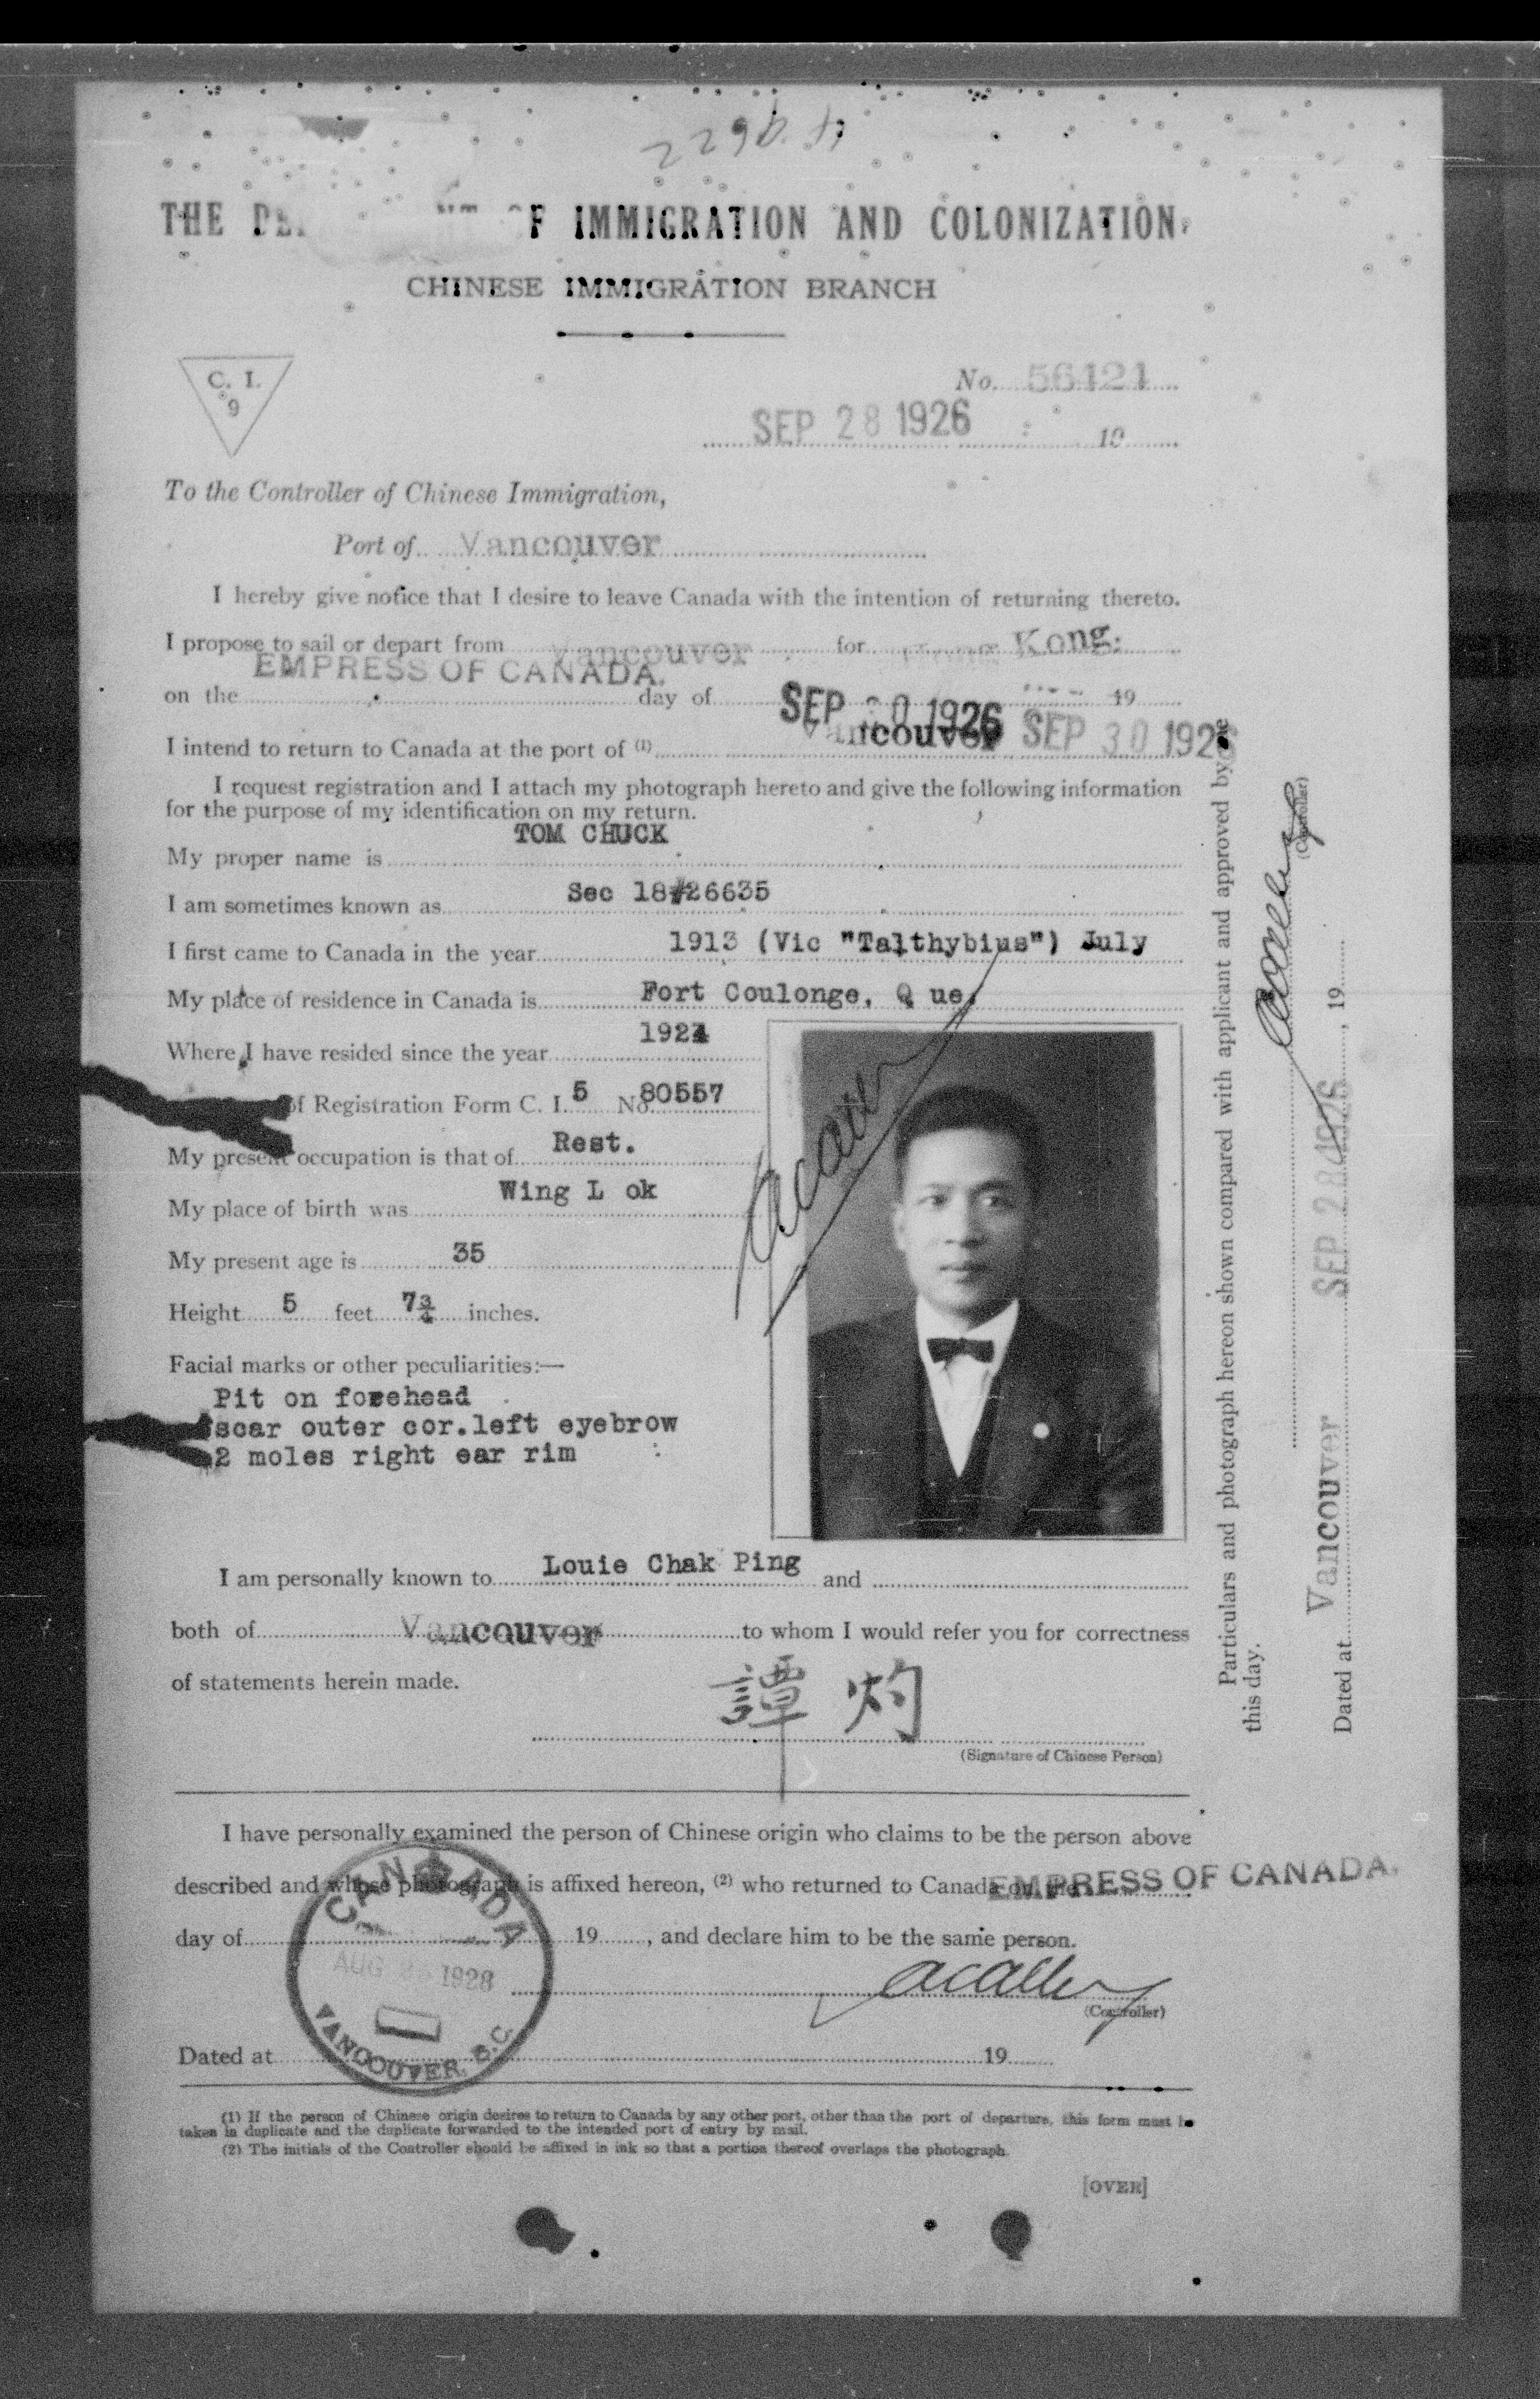 THE OF IMMIGRATION AND COLONIZATION
CHINESE IMMIGRATION BRANCH
C. I.
9
No. 56121
SEP 28 1926 19
To the Controller of Chinese Immigration,
Port of Vancouver
I hereby give notice that I desire to leave Canada with the intention of returning thereto.
I propose to sail or depart from Vancouver for Hong Kong.
EMPRESS OF CANADA.
on the day of SEP 30 1926 19
I intend to return to Canada at the port of (1) Vancouver SEP 30 1926
I request registration and I attach my photograph hereto and give the following information
for the purpose of my identification on my return.
My proper name is TOM CHUCK
I am sometimes known as Sec 18#26635
I first came to Canada in the year 1913 (Vic "Talthybius") July
My place of residence in Canada is Fort Coulonge, Q ue.
Where I have resided since the year 1924
of Registration Form C. I. 5 No. 80557
My present occupation is that of Rest.
My place of birth was Wing L ok
My present age is 35
Height 5 feet 7 3/4 inches.
Facial marks or other peculiarities:—
Pit on forehead
scar outer cor.left eyebrow
2 moles right ear rim
I am personally known to Louie Chak Ping and
both of Vancouver to whom I would refer you for correctness
of statements herein made.
譚灼
(Signature of Chinese Person)
I have personally examined the person of Chinese origin who claims to be the person above
described and whose photograph is affixed hereon, (2) who returned to Canada on the EMPRESS OF CANADA.
day of 19 , and declare him to be the same person.
(Controller)
Dated at 19
CANADA
AUG 1928
VANCOUVER, B.C.
(1) If the person of Chinese origin desires to return to Canada by any other port, other than the port of departure, this form must be
taken in duplicate and the duplicate forwarded to the intended port of entry by mail.
(2) The initials of the Controller should be affixed in ink so that a portion thereof overlaps the photograph.
[OVER]
Particulars and photograph hereon shown compared with applicant and approved by me
this day.
(Controller)
Dated at Vancouver SEP 28 1926, 19